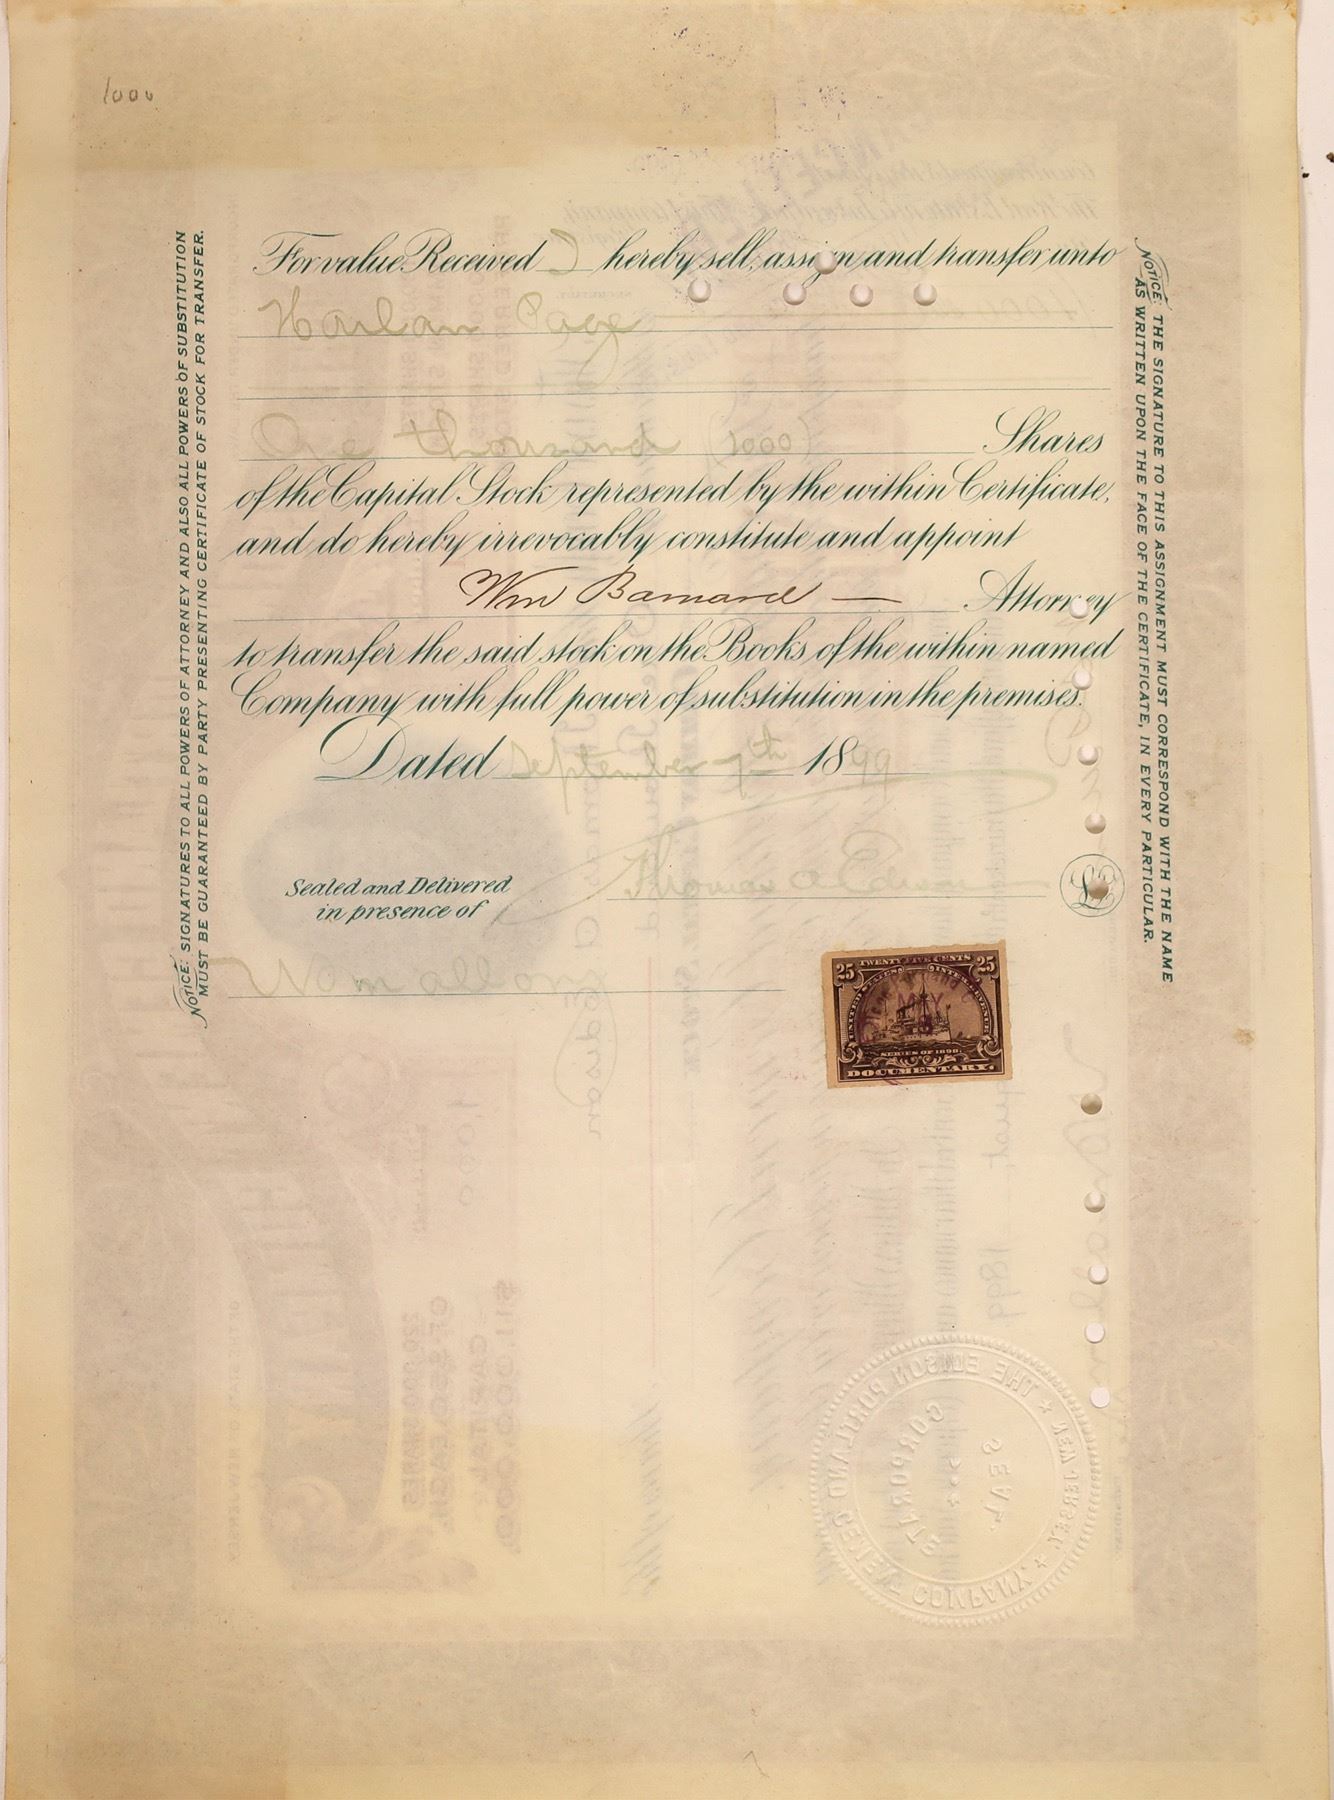 1000
For value Received I hereby sell, assign and transfer unto
Harlan Page
One thousand (1000) Shares
of the Capital Stock represented by the within Certificate,
and do hereby irrevocably constitute and appoint
Wm Barnard — Attorney
to transfer the said stock on the Books of the within named
Company with full power of substitution in the premises.
Dated September 7th 1899
Thomas A Edison
Sealed and Delivered
in presence of
NOTICE: SIGNATURES TO ALL POWERS OF ATTORNEY AND ALSO ALL POWERS OF SUBSTITUTION
MUST BE GUARANTEED BY PARTY PRESENTING CERTIFICATE OF STOCK FOR TRANSFER.
NOTICE: THE SIGNATURE TO THIS ASSIGNMENT MUST CORRESPOND WITH THE NAME
AS WRITTEN UPON THE FACE OF THE CERTIFICATE, IN EVERY PARTICULAR.
25 TWENTY FIVE CENTS 25
UNITED STATES INTERNAL REVENUE
MAY
SERIES OF 1898.
DOCUMENTARY.
THE EDISON PORTLAND CEMENT COMPANY.
NEW JERSEY.
CORPORATE
SEAL.